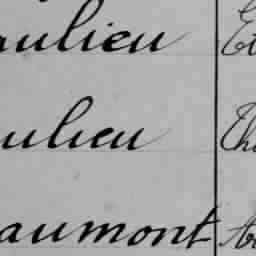 aulieu Et
ulieu Th
aumont